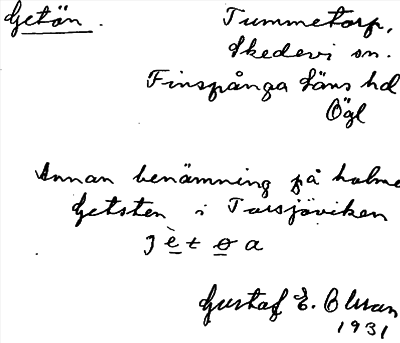 Getön. Tummetorp,
Skedevi sn.
Finspånga läns hd
Ögl
Annan benämning på holme
Getsten i Torsjöviken
j è t ө a
Gustaf E. Olsson
1931